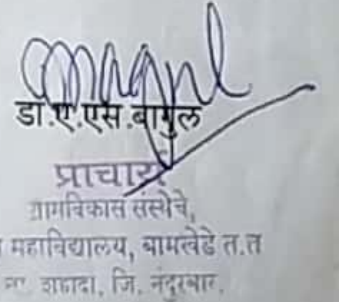 डा.ए.एस.बागुल
प्राचार्य
ग्रामविकास संस्थेचे,
महाविद्यालय, बामखेडे त.त
शहादा, जि. नंदुरबार.